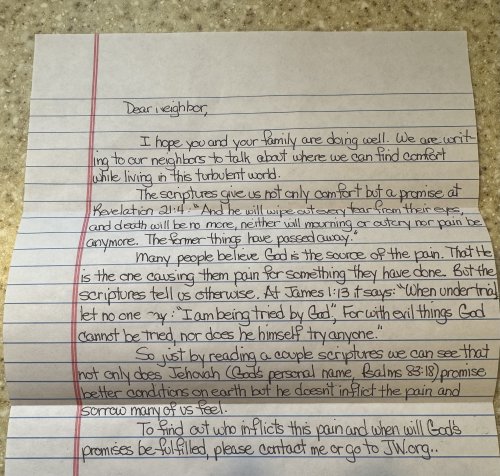 Dear neighbor,
I hope you and your family are doing well. We are writ-
ing to our neighbors to talk about where we can find comfort
while living in this turbulent world.
The scriptures give us not only comfort but a promise at
Revelation 21:4. "And he will wipe out every tear from their eyes,
and death will be no more, neither will mourning or outcry nor pain be
anymore. The former things have passed away."
Many people believe God is the source of the pain. That He
is the one causing them pain for something they have done. But the
scriptures tell us otherwise. At James 1:13 it says: "When under trial,
let no one say: "I am being tried by God", For with evil things God
cannot be tried, nor does he himself try anyone."
So just by reading a couple scriptures we can see that
not only does Jehovah (God's personal name, Psalms 83:18) promise
better conditions on earth but he doesn't inflict the pain and
sorrow many of us feel.
To find out who inflicts this pain and when will God's
promises be fulfilled, please contact me or go to JW.org..